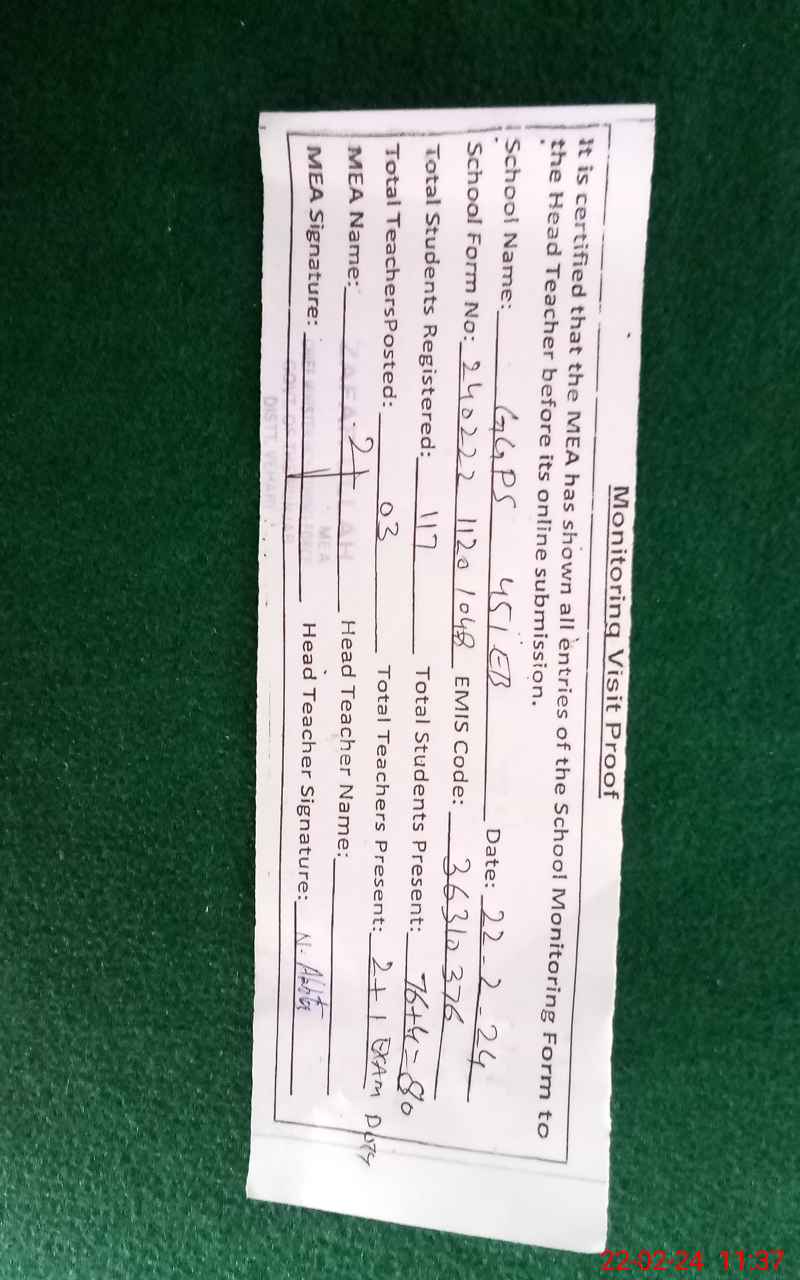 Monitoring Visit Proof
It is certified that the MEA has shown all entries of the School Monitoring Form to
the Head Teacher before its online submission.
School Name: GGPS 451 EB Date: 22-2-24
School Form No: 240222 1120 1048 EMIS Code: 36310376
Total Students Registered: 117 Total Students Present: 76+4=80
Total TeachersPosted: 03 Total Teachers Present: 2+1 EXAM DUTY
MEA Name: Head Teacher Name:
MEA
MEA Signature: Head Teacher Signature: N.
DISTT. VEHARI
22-02-24 11:37